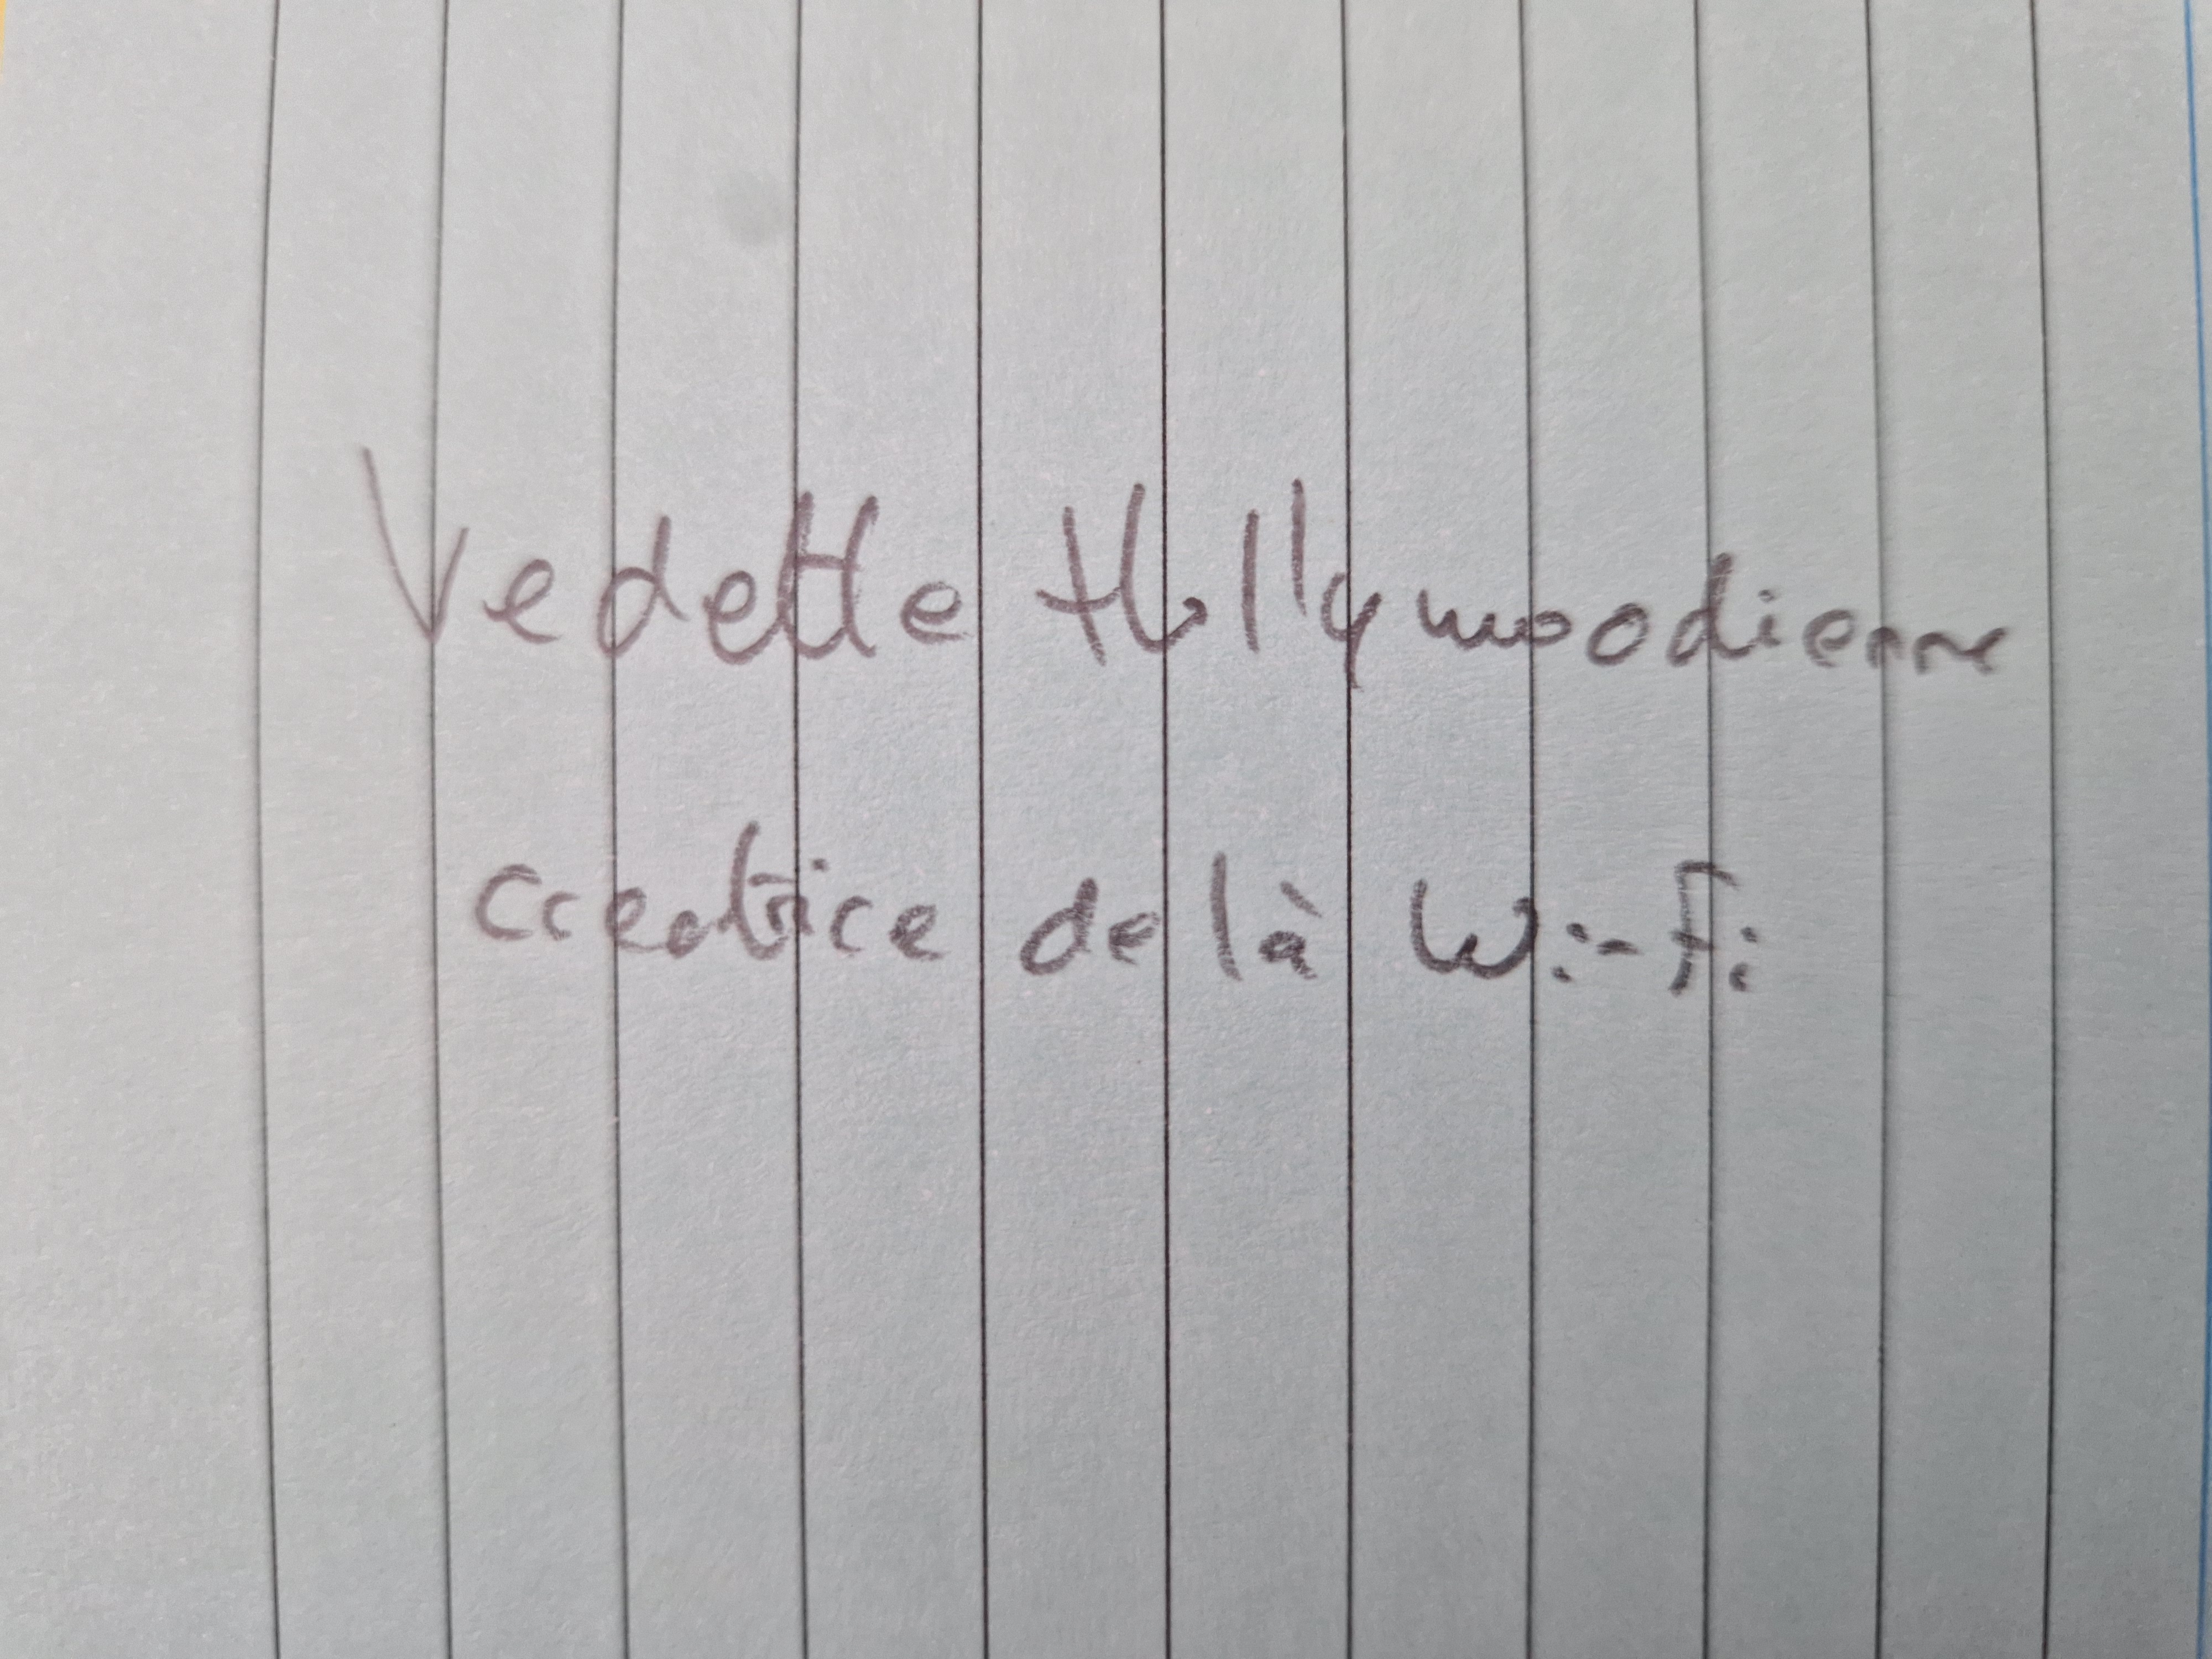 Vedette Hollywoodienne
créatrice de là Wi-Fi